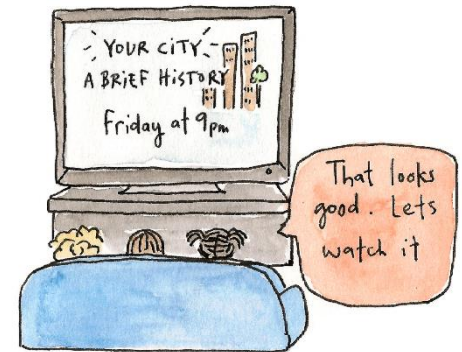 YOUR CITY
A BRIEF HISTORY
Friday at 9pm
That looks
good. Lets
watch it